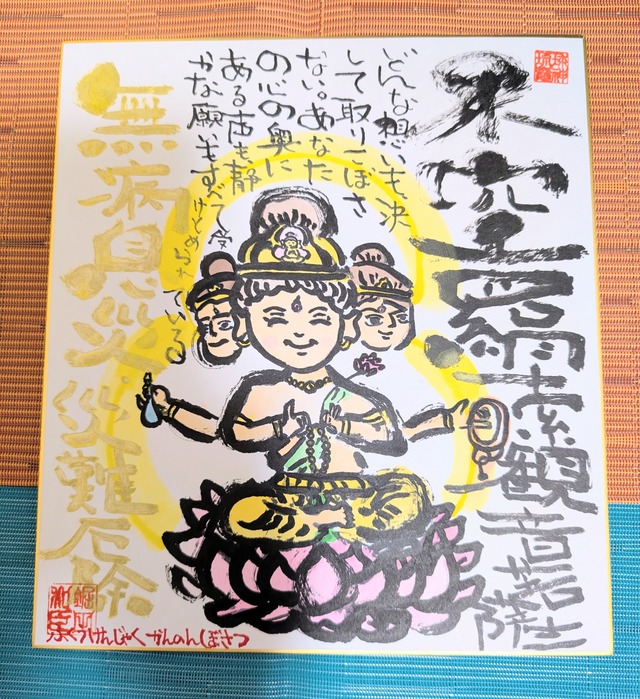 不空羂索観音菩薩
どんな想いも決
して取りこぼさ
ない。あなた
の心の奥に
ある声も静
かな願いもすべて受
けとめられている
無病息災 災難厄除
ふくうけんじゃくかんのんぼさつ